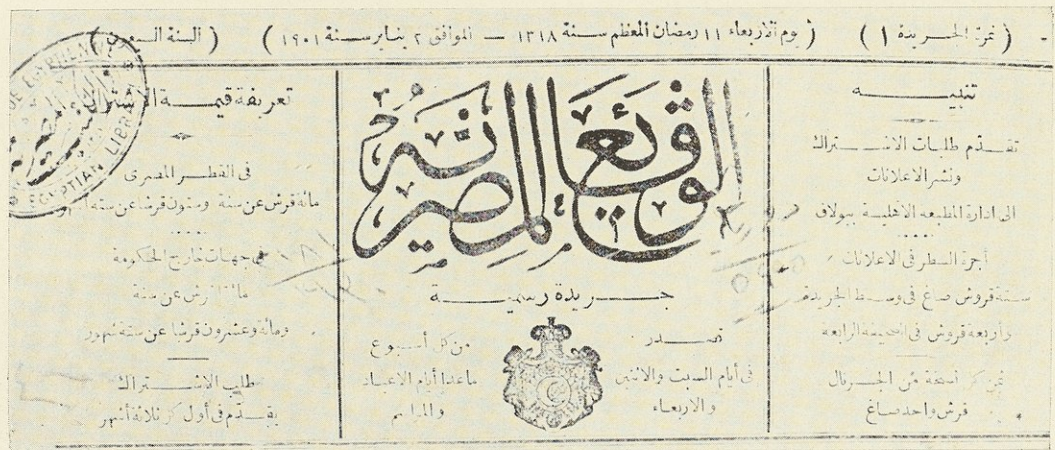 ( نمرة الجريدة ١ ) ( يوم الاربعاء ١١ رمضان المعظم سنة ١٣١٨ — الموافق ٢ يناير سنة ١٩٠١ ) ( السنة السبعون )
تنبيه
تقدم طلبات الاشتراك
ونشر الاعلانات
الى ادارة المطبعه الأهلية ببولاق
أجرة السطر فى الاعلانات
ستة قروش صاغ فى وسط الجريدة
وأربعة قروش فى الصحيفة الرابعة
ثمن كل نسخة من الجرنال
قرش واحد صاغ
الوقائع المصرية
جريدة رسمية
تصدر
فى أيام السبت والاثنين
والاربعاء
من كل أسبوع
ماعدا أيام الاعياد
والمواسم
تعريفة قيمة الاشتراك
فى القطر المصرى
مائة قرش عن سنة وستون قرشا عن ستة أشهر
فى جهات خارج الحكومة
مائتا قرش عن سنة
ومائة وعشرون قرشا عن ستة شهور
طلب الاشتراك
يقدم فى أول كل ثلاثة أشهر
EGYPTIAN LIBRARY